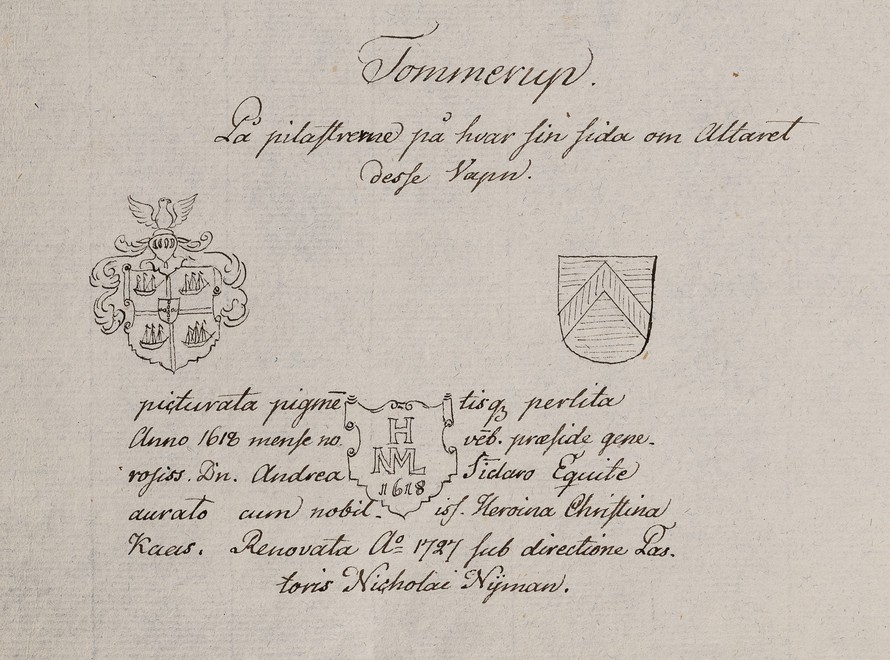 Tommerup.
På pilastrerne på hvar sin sida om Altaret
desse Vapn.
picturata pigmē tisqꝫ perlita
Anno 1618 mense no vēb. præside gene-
rosiss. Dn. Andrea Sidaro Equite
aurato cum nobil- iss. Heroina Christina
Kaas. Renovata Ao 1727 sub directione Pas-
toris Nicholai Nÿman.
H
NML
1618